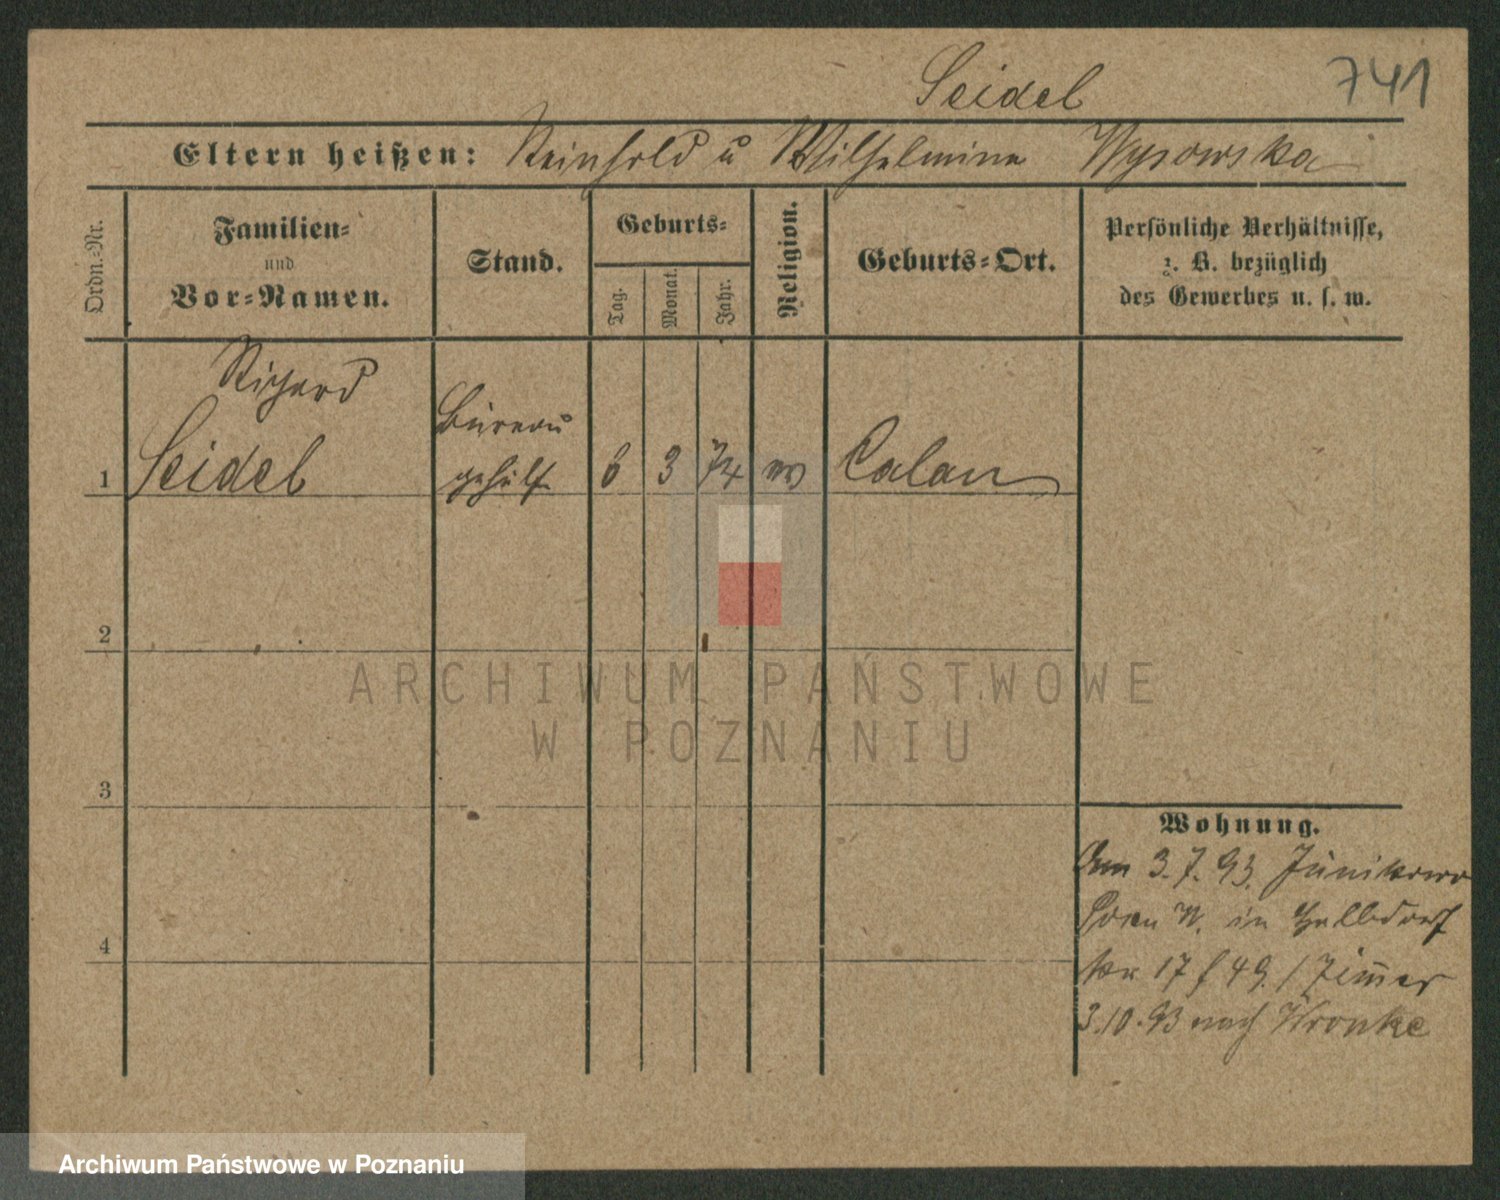 Seidel 741
Eltern heißen: Reinhold u Wilhelmine Wysowska
Ordn.-Nr.
Familien-
und
Vor-Namen.
Stand.
Geburts-
Tag. Monat. Jahr.
Religion.
Geburts-Ort.
Persönliche Verhältnisse,
z. B. bezüglich
des Gewerbes u. s. w.
Richard
1 Seidel Büreau
gehülf 6 3 74 ev Calau
2
3
4
Wohnung.
Am 3.7.93. Junikowo
in
17 49. / Zimer
3.10.93 nach Wronke
ARCHIWUM PAŃSTWOWE
W POZNANIU
Archiwum Państwowe w Poznaniu